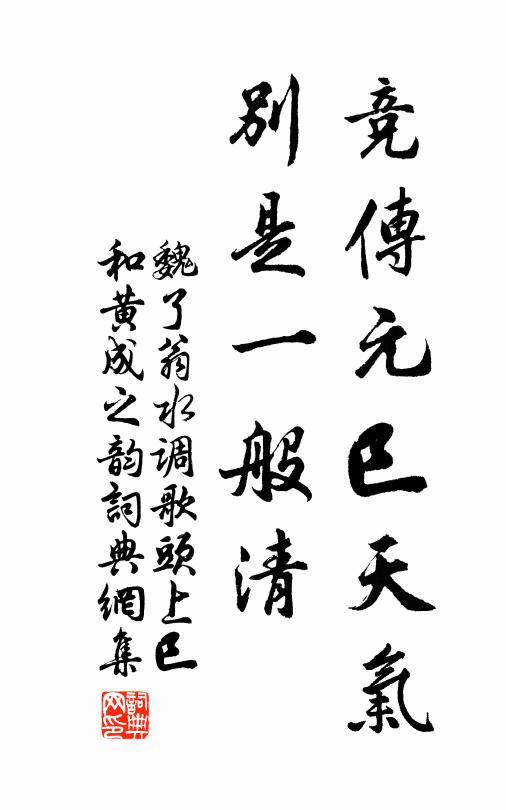 竞傳元巳天氣
别是一般清
魏了翁水调歌頭上巳
和黄成之韵詞典網集
詞典网印